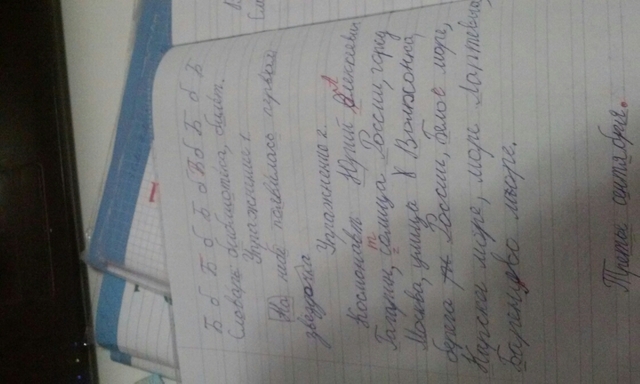 Б б Б б Б б Б б Б б Б
Словарь: библиотека, билет.
Упражнение 1.
На небе появилась первая
звезда
Упражнение 2.
Космонавт Юрий Алексеевич
Гагарин, столица России, город
Москва, улица Волхонка,
берега России, Белое море,
Карское море, море Лаптевых,
Баренцево море.
Третье сентября.